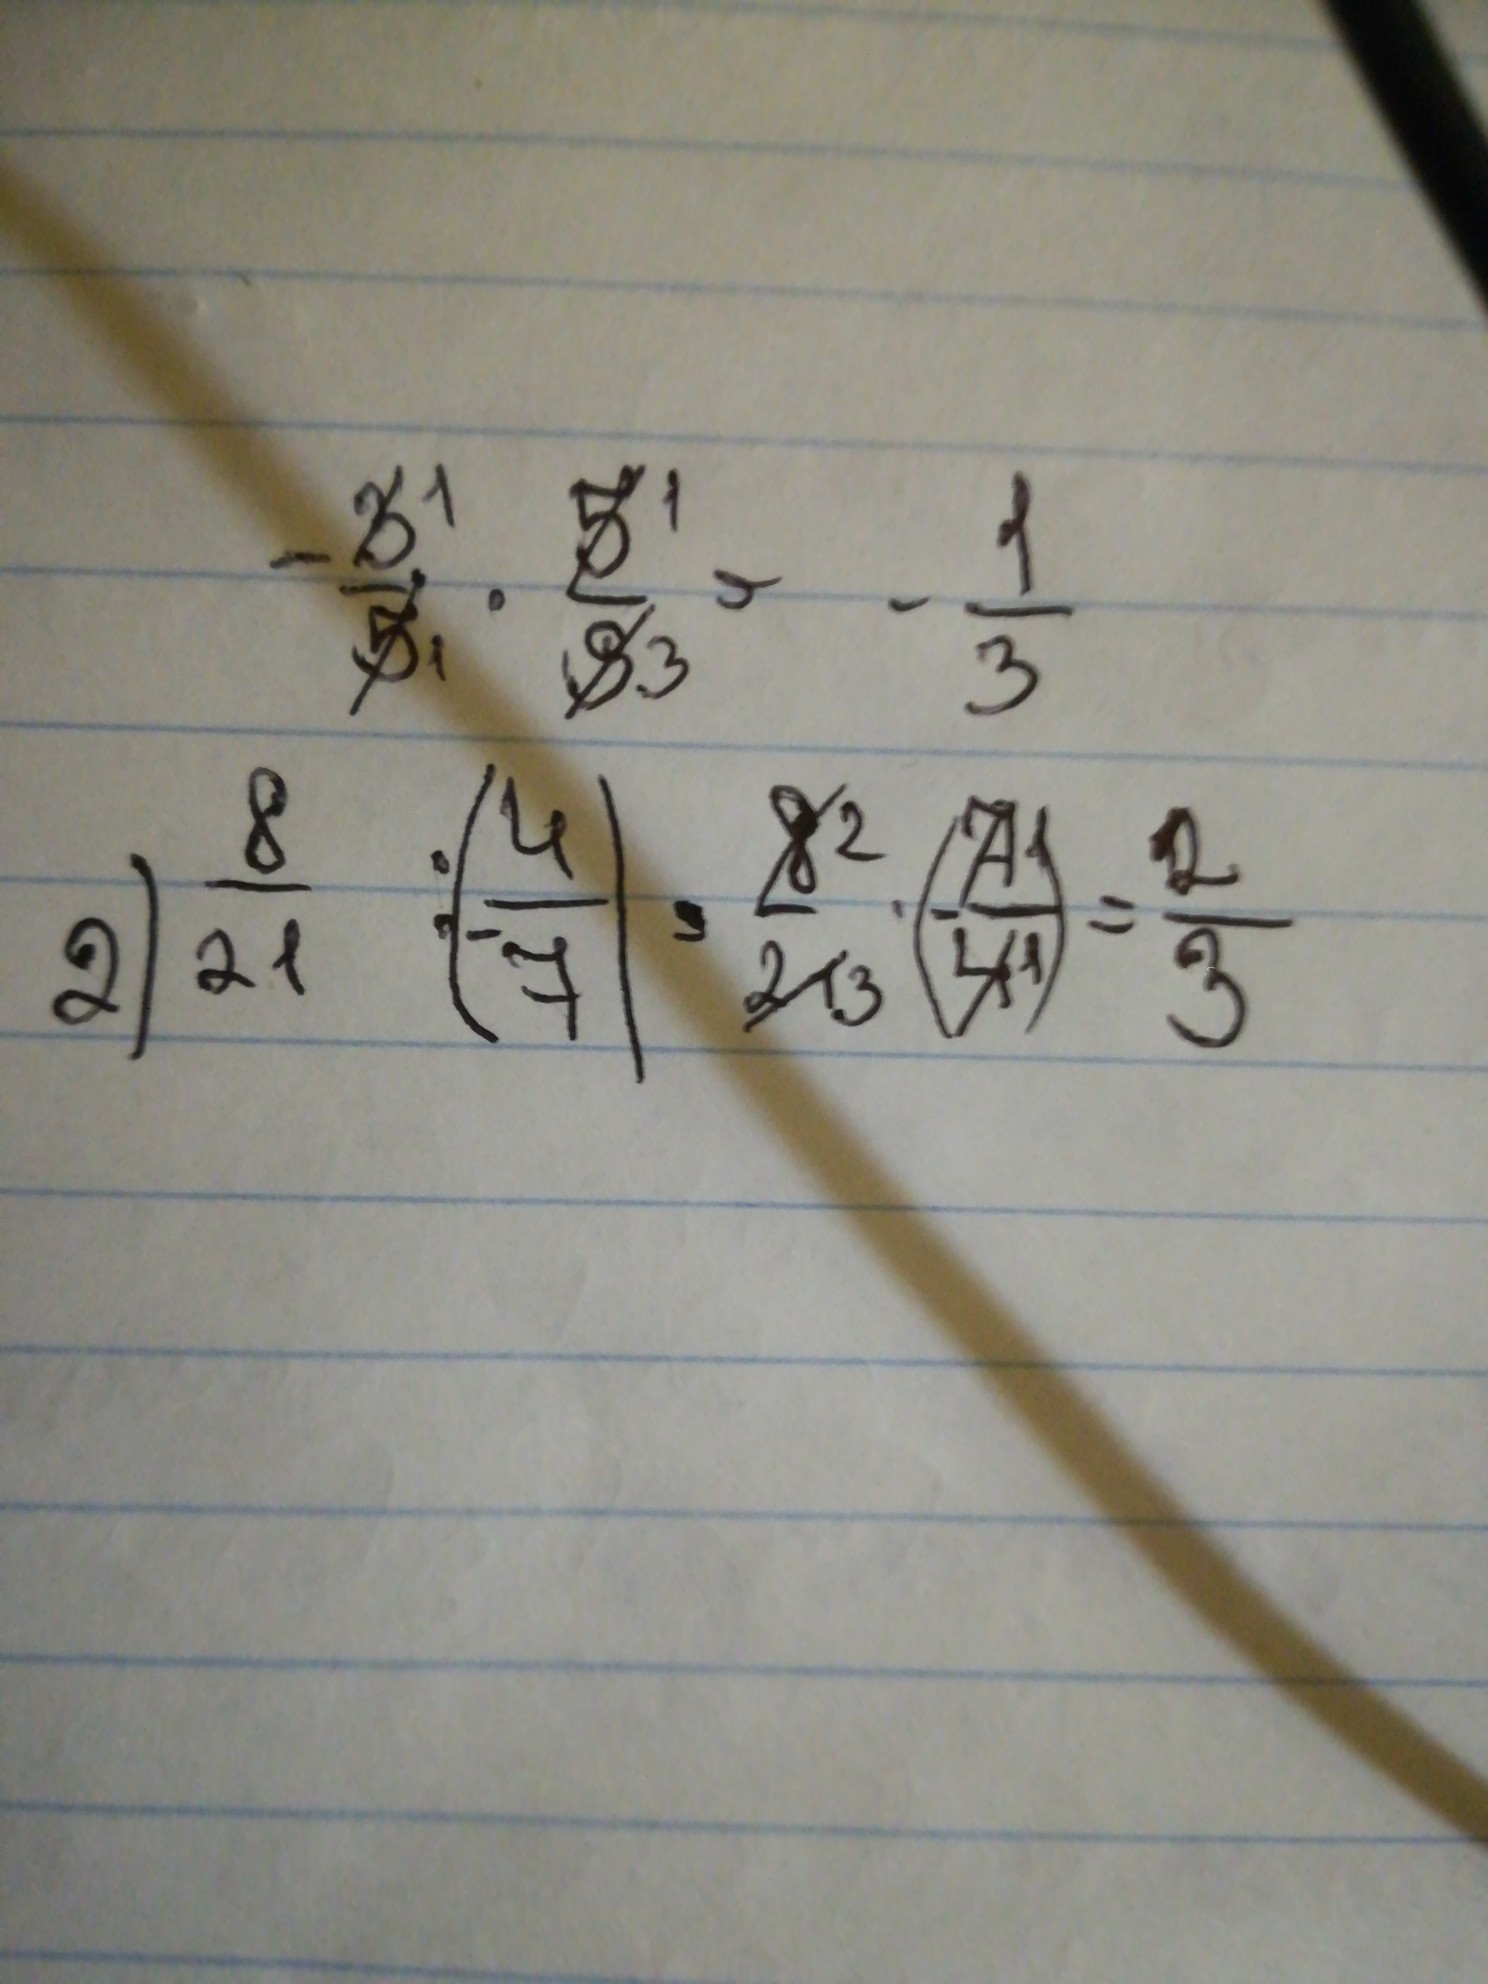 - 3 1 / 5 1 · 5 1 / 9 3 = - 1 / 3
2) 8 / 21 : (- 4 / 7) = 8 2 / 21 3 · (- 7 1 / 4 1) = 2 / 3